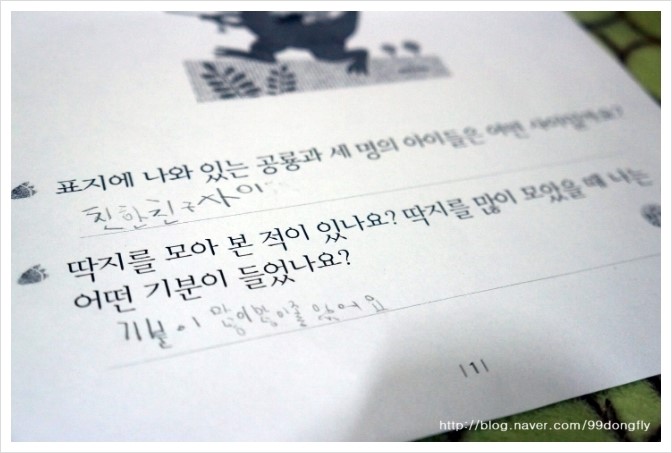 표지에 나와 있는 공룡과 세 명의 아이들은 어떤 사이일까요?
친한친구사이
딱지를 모아 본 적이 있나요? 딱지를 많이 모았을 때 나는
어떤 기분이 들었나요?
기분이
|1|
http://blog.naver.com/99dongfly